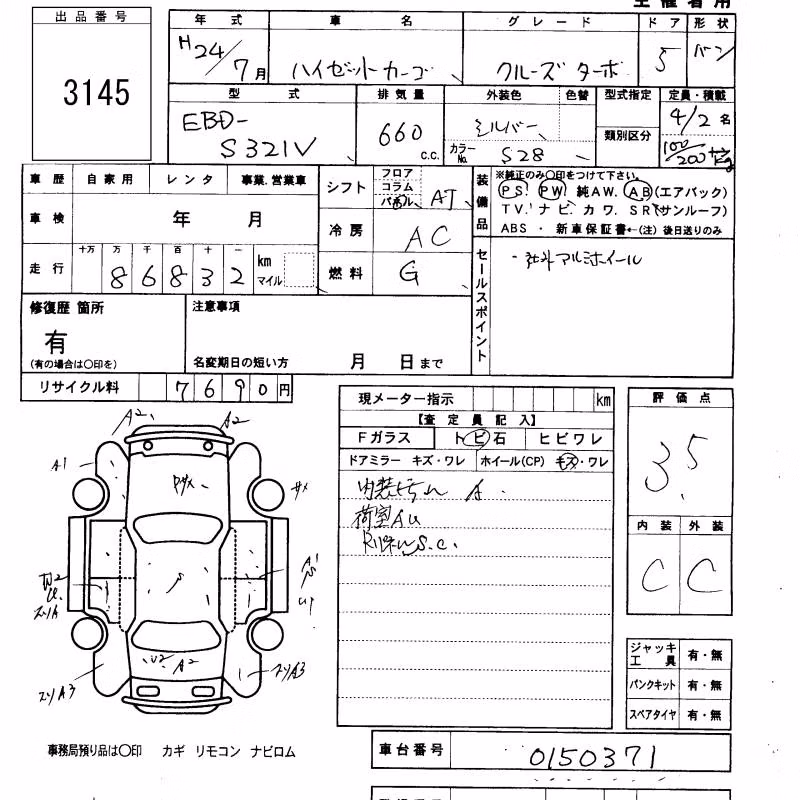 出品番号
3145
年式 車名 グレード ドア 形状
H24/7月 ハイゼットカーゴ クルーズターボ 5 バン
型式 排気量 外装色 色替 型式指定 定員・積載
EBD-S321V 660 c.c. シルバー 類別区分 4/2名
カラーNo. S28 100/200 kg
車歴 自家用 レンタ 事業.営業車
車検 年 月
走行 十万 万 千 百 十 一 km マイル
86832
シフト フロア コラム パネル AT
冷房 AC
燃料 G
装備品 ※純正のみ〇印をつけて下さい。
PS. PW 純AW. AB(エアバック)
TV. ナビ. カワ. SR(サンルーフ)
ABS ・ 新車保証書←(注) 後日送りのみ
セールスポイント
・社外アルミホイール
修復歴 箇所
有
(有の場合は〇印を)
注意事項
名変期日の短い方 月 日まで
リサイクル料 7690円
現メーター指示 km
【査定員記入】
Fガラス トビ石 ヒビワレ
ドアミラー キズ・ワレ ホイール(CP) キズ・ワレ
A
荷室AU
S.C.
評価点
3.5
内装 外装
C C
ジャッキ工具 有・無
パンクキット 有・無
スペアタイヤ 有・無
A2
A2
A1
A1
U2
A2
事務局預り品は〇印 カギ リモコン ナビロム
車台番号 0150371